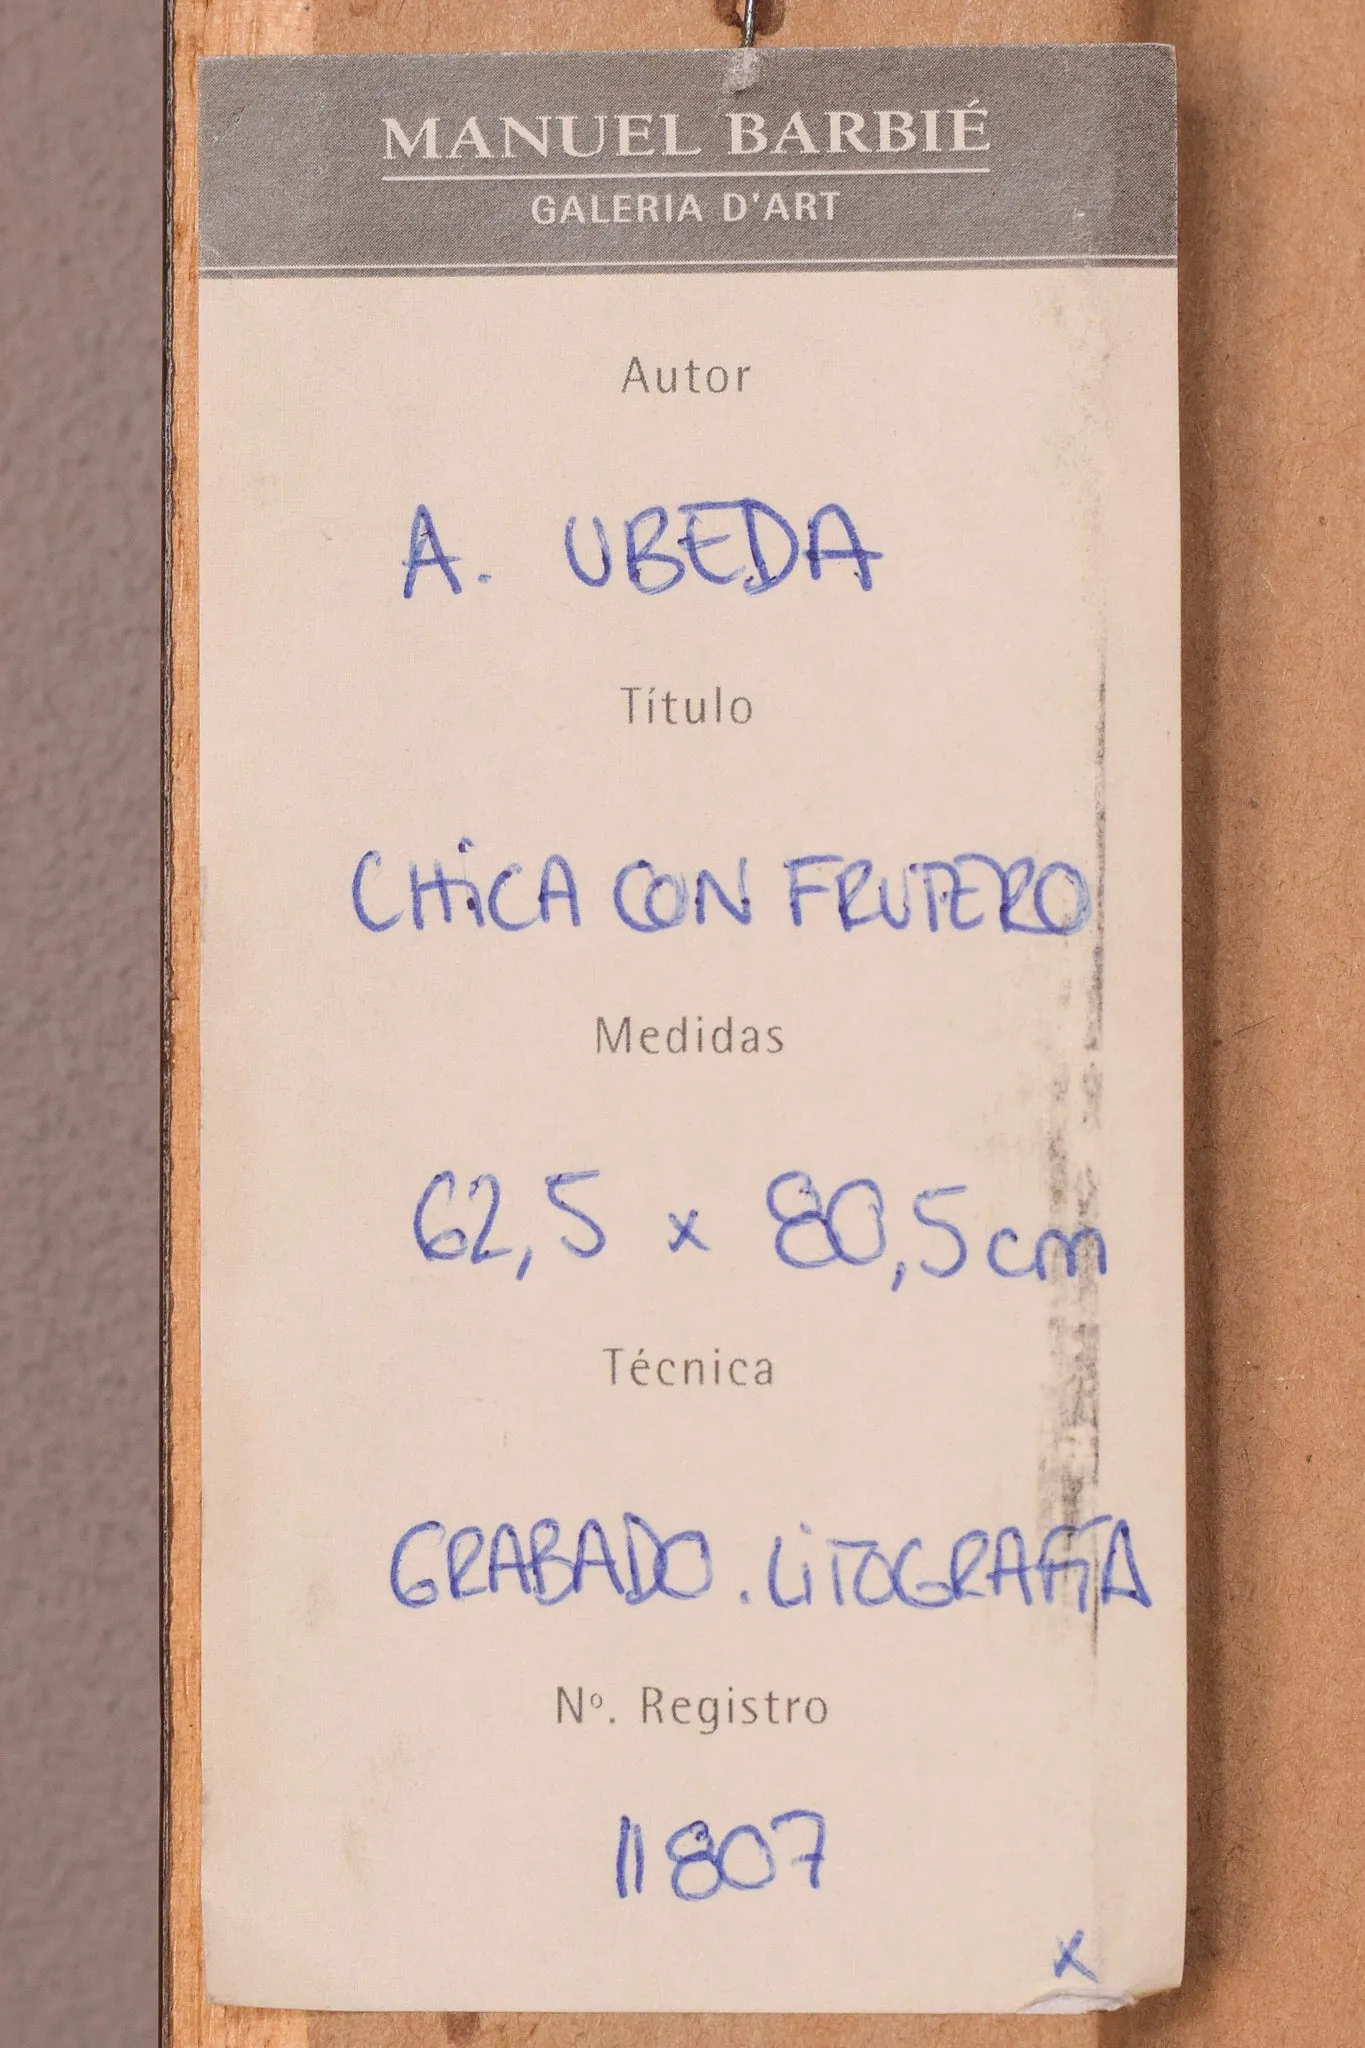 MANUEL BARBIÉ
GALERIA D'ART
Autor
A. UBEDA
Título
CHiCA CON FRUTERO
Medidas
62,5 x 80,5 cm
Técnica
GRABADO. LiTOGRAFÍA
Nº. Registro
11807
x